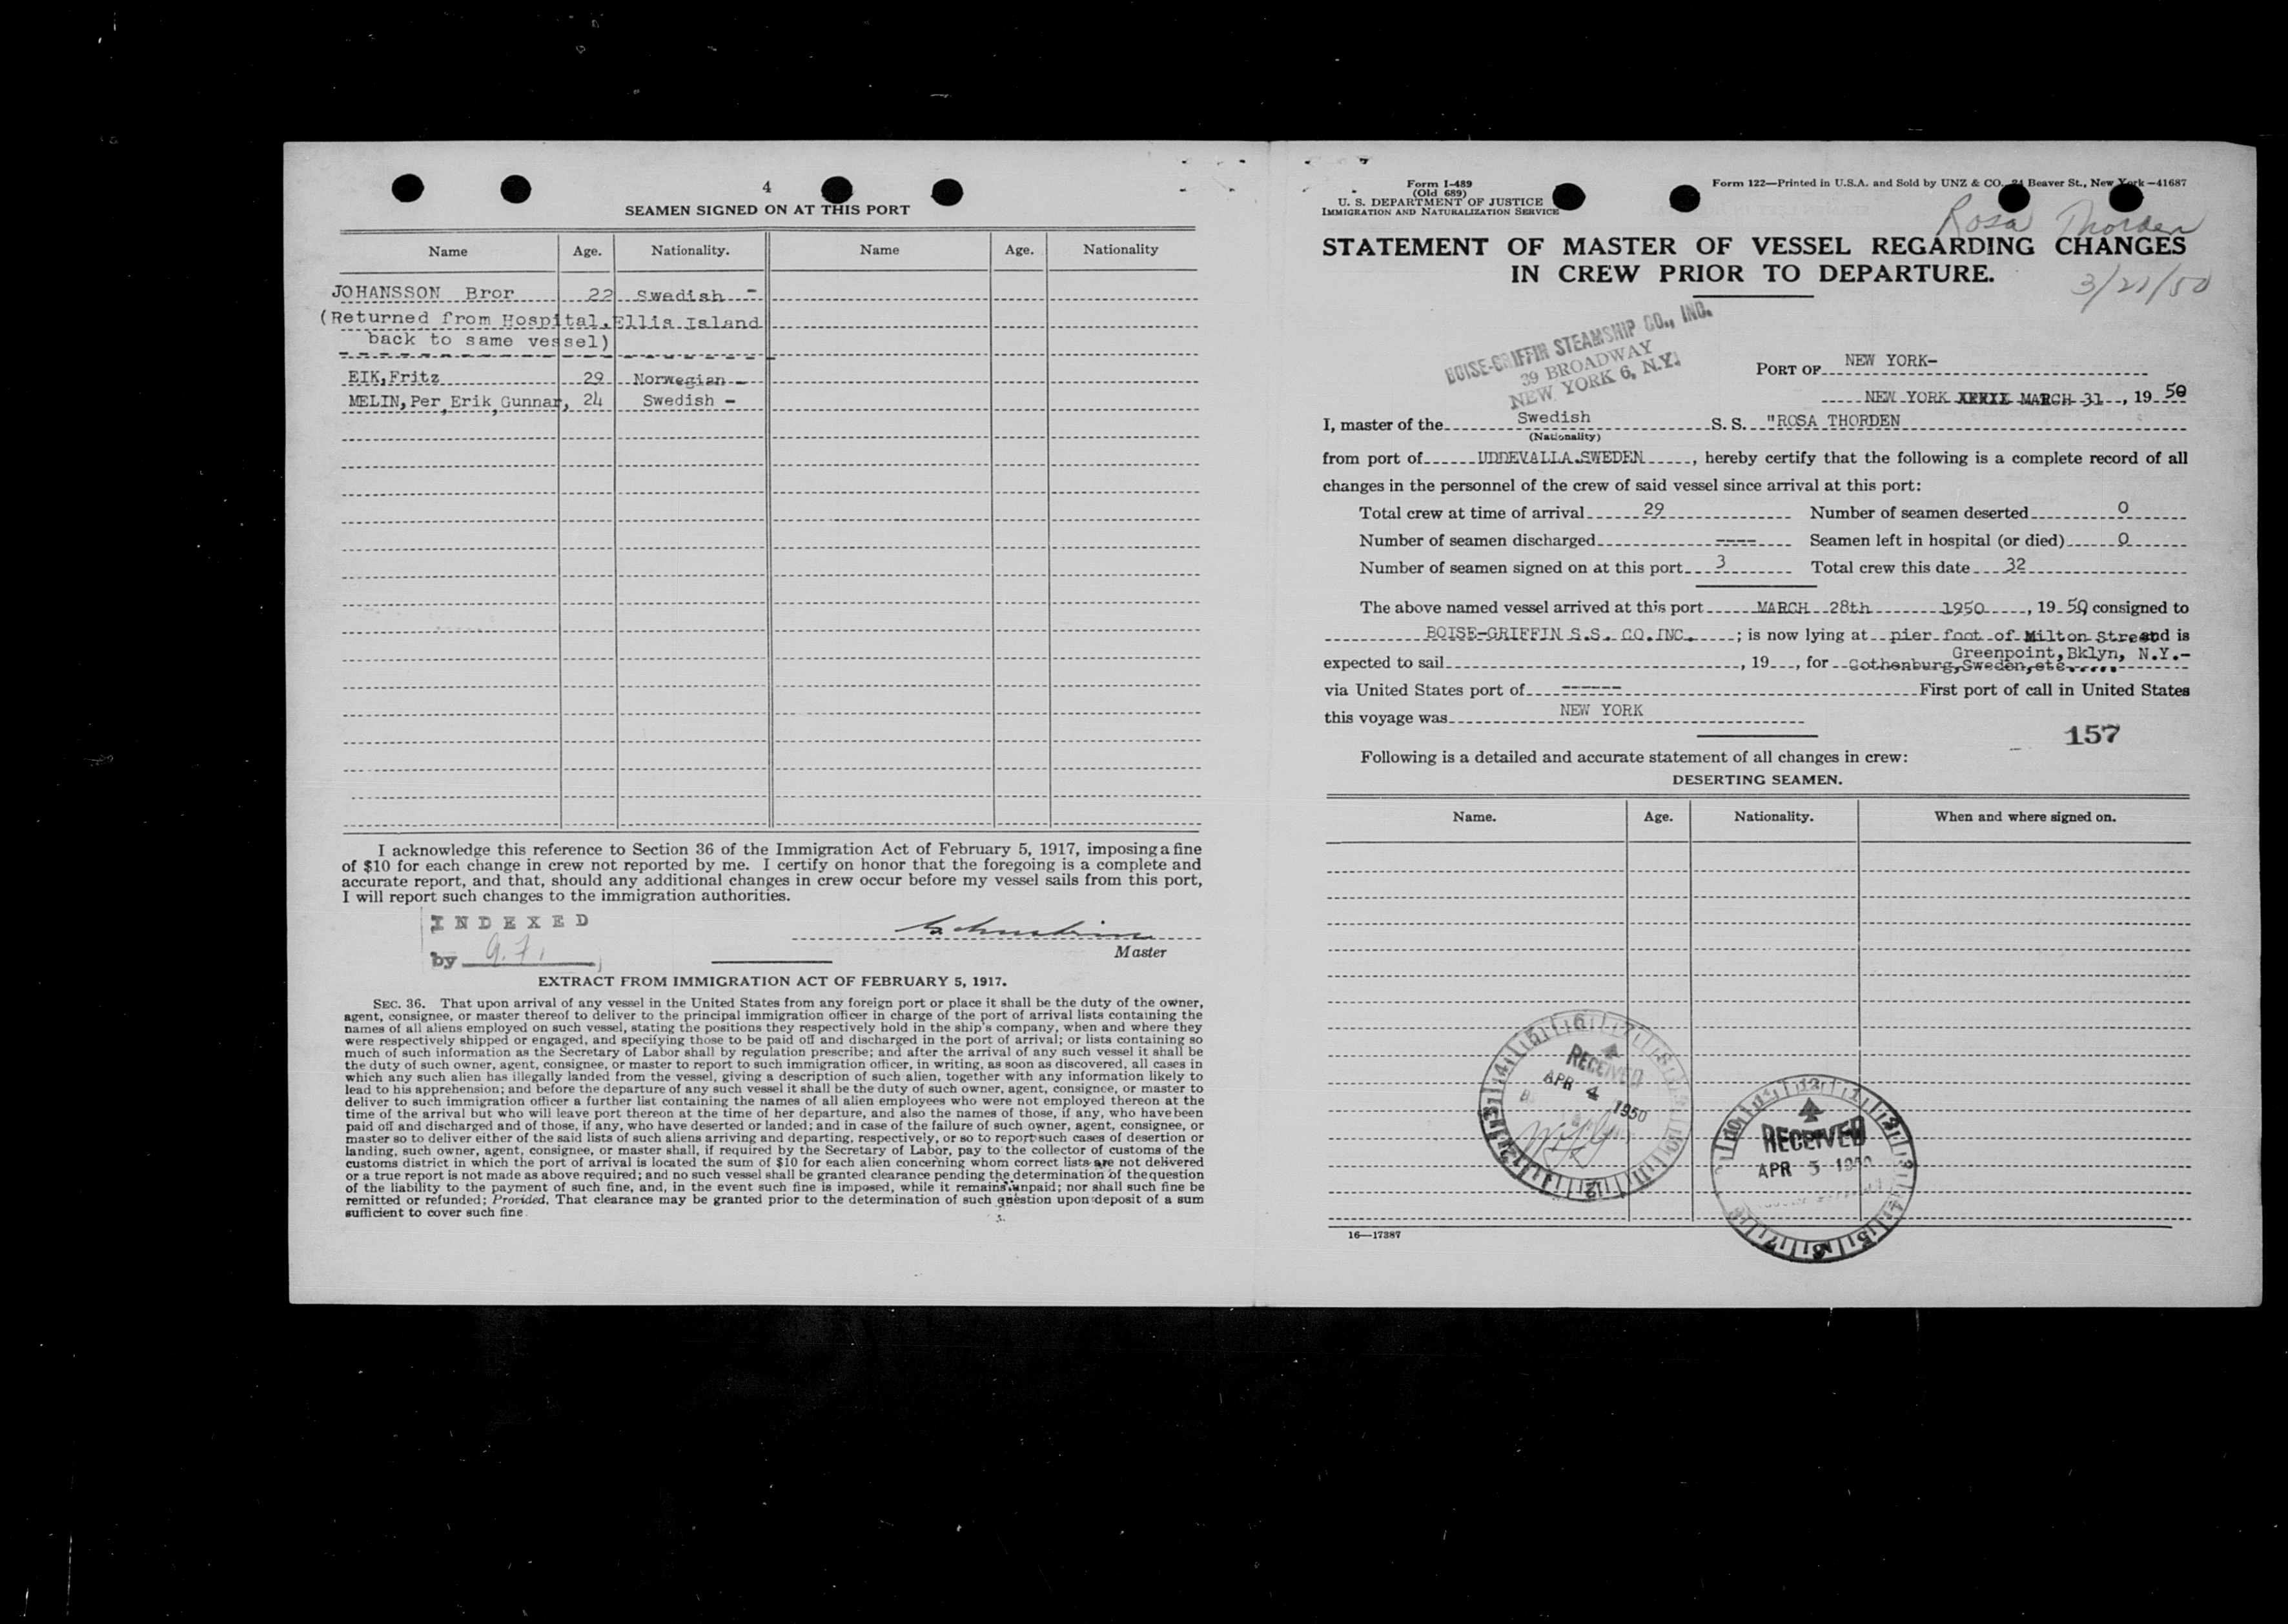 4
SEAMEN SIGNED ON AT THIS PORT
Name Age. Nationality. Name Age. Nationality
JOHANSSON Bror 22 Swedish -
(Returned from Hospital, Ellis Island
back to same vessel)
EIK, Fritz 29 Norwegian -
MELIN, Per, Erik, Gunnar, 24 Swedish -
I acknowledge this reference to Section 36 of the Immigration Act of February 5, 1917, imposing a fine
of $10 for each change in crew not reported by me. I certify on honor that the foregoing is a complete and
accurate report, and that, should any additional changes in crew occur before my vessel sails from this port,
I will report such changes to the immigration authorities.
INDEXED
by
Master
EXTRACT FROM IMMIGRATION ACT OF FEBRUARY 5, 1917.
SEC. 36. That upon arrival of any vessel in the United States from any foreign port or place it shall be the duty of the owner,
agent, consignee, or master thereof to deliver to the principal immigration officer in charge of the port of arrival lists containing the
names of all aliens employed on such vessel, stating the positions they respectively hold in the ship's company, when and where they
were respectively shipped or engaged, and specifying those to be paid off and discharged in the port of arrival; or lists containing so
much of such information as the Secretary of Labor shall by regulation prescribe; and after the arrival of any such vessel it shall be
the duty of such owner, agent, consignee, or master to report to such immigration officer, in writing, as soon as discovered, all cases in
which any such alien has illegally landed from the vessel, giving a description of such alien, together with any information likely to
lead to his apprehension; and before the departure of any such vessel it shall be the duty of such owner, agent, consignee, or master to
deliver to such immigration officer a further list containing the names of all alien employees who were not employed thereon at the
time of the arrival but who will leave port thereon at the time of her departure, and also the names of those, if any, who have been
paid off and discharged and of those, if any, who have deserted or landed; and in case of the failure of such owner, agent, consignee, or
master so to deliver either of the said lists of such aliens arriving and departing, respectively, or so to report such cases of desertion or
landing, such owner, agent, consignee, or master shall, if required by the Secretary of Labor, pay to the collector of customs of the
customs district in which the port of arrival is located the sum of $10 for each alien concerning whom correct lists are not delivered
or a true report is not made as above required; and no such vessel shall be granted clearance pending the determination of the question
of the liability to the payment of such fine, and, in the event such fine is imposed, while it remains unpaid; nor shall such fine be
remitted or refunded; Provided, That clearance may be granted prior to the determination of such question upon deposit of a sum
sufficient to cover such fine.
Form I-489
(Old 689)
U. S. DEPARTMENT OF JUSTICE
IMMIGRATION AND NATURALIZATION SERVICE
Form 122—Printed in U.S.A. and Sold by UNZ & CO., 24 Beaver St., New York—41687
Rosa Thorden
STATEMENT OF MASTER OF VESSEL REGARDING CHANGES
IN CREW PRIOR TO DEPARTURE.
3/21/50
BOISE-GRIFFIN STEAMSHIP CO., INC.
39 BROADWAY
NEW YORK 6, N.Y.
PORT OF NEW YORK-
NEW YORK MARCH 31, 1950
I, master of the Swedish S. S. "ROSA THORDEN
(Nationality)
from port of UDDEVALLA.SWEDEN, hereby certify that the following is a complete record of all
changes in the personnel of the crew of said vessel since arrival at this port:
Total crew at time of arrival 29 Number of seamen deserted 0
Number of seamen discharged ---- Seamen left in hospital (or died) 0
Number of seamen signed on at this port 3 Total crew this date 32
The above named vessel arrived at this port MARCH 28th 1950, 1950 consigned to
BOISE-GRIFFIN S.S. CO.INC. ; is now lying at pier foot of Milton Street and is
Greenpoint, Bklyn, N.Y.-
expected to sail , 19 , for Gothenburg, Sweden, etc.....
via United States port of ------ First port of call in United States
this voyage was NEW YORK
157
Following is a detailed and accurate statement of all changes in crew:
DESERTING SEAMEN.
Name. Age. Nationality. When and where signed on.
RECEIVED
APR 4 1950
RECEIVED
APR 5 1950
16—17387